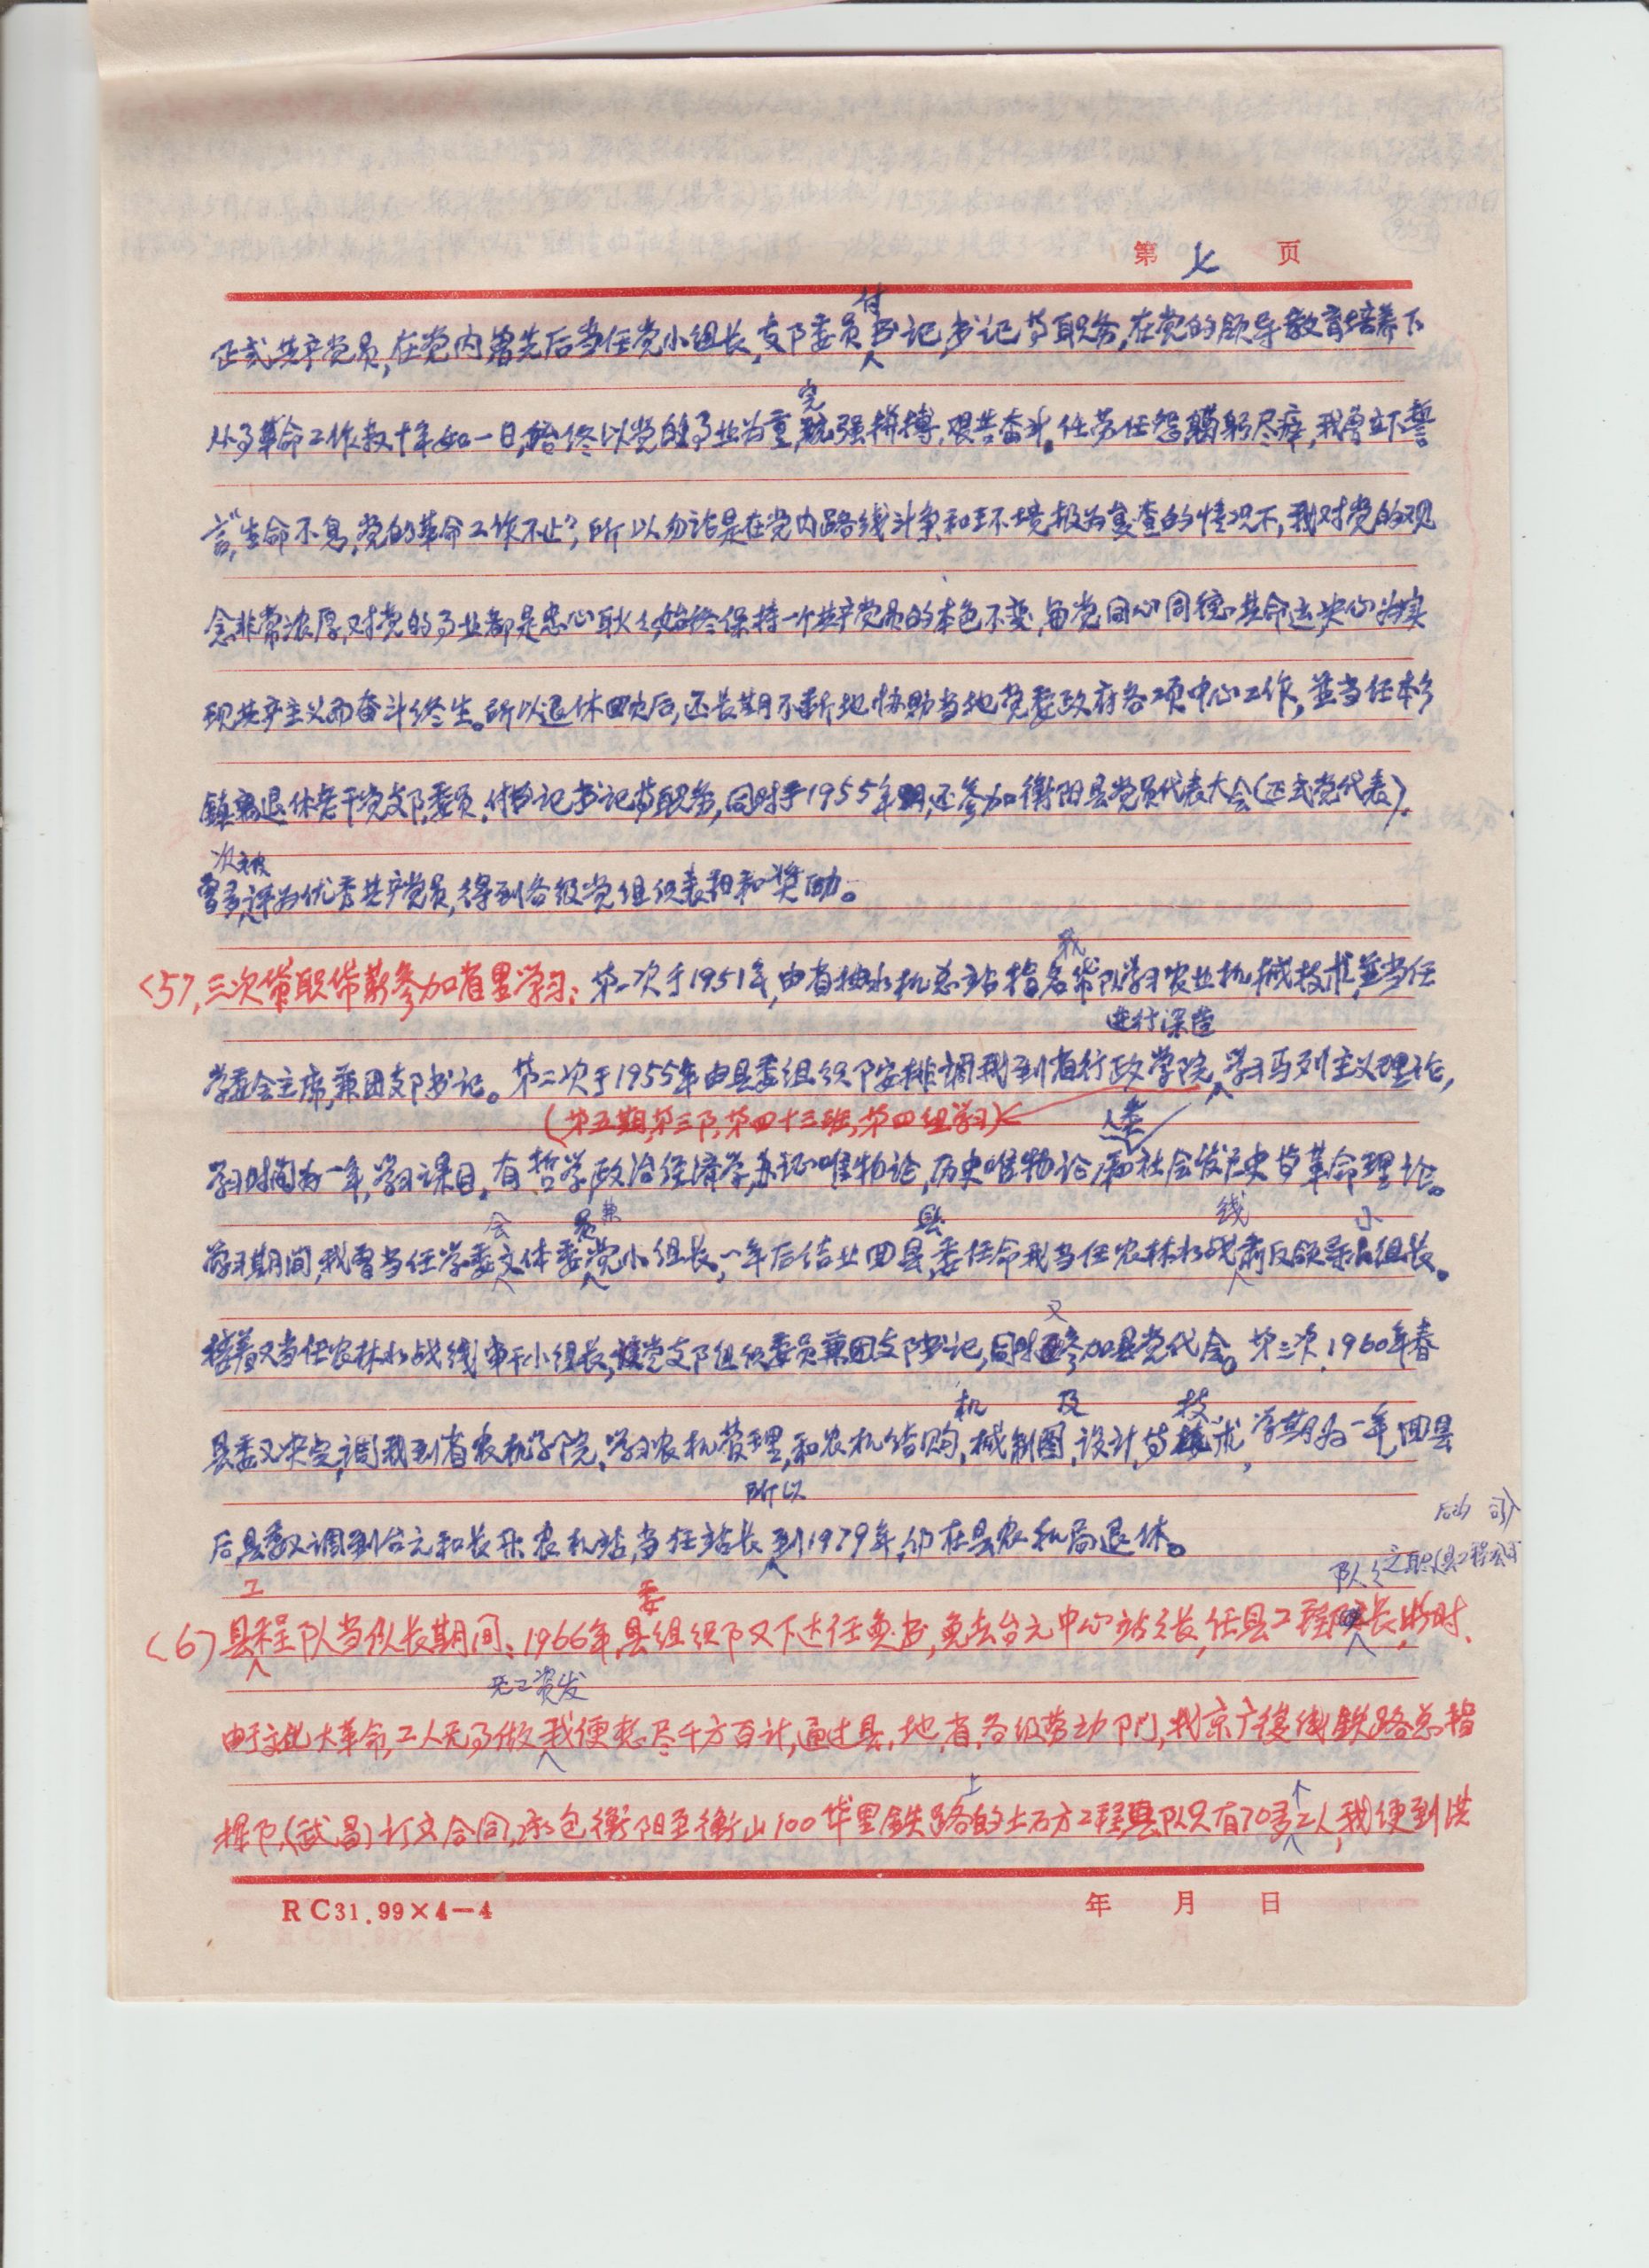 第 七 页
正式共产党员,在党内曾先后当任党小组长,支部委员付书记,书记等职务,在党的领导教育培养下
从事革命工作数十年如一日,始终以党的事业为重,顽强拼搏,艰苦奋斗,任劳任怨,鞠躬尽瘁,我曾立下誓
言,“生命不息,党的革命工作不止”,所以勿论是在党内路线斗争和环境极为复查的情况下,我对党的观
念非常浓厚,对党的事业都是忠心耿耿,始终保持一个共产党员的本色不变,与党同心同德,共命运,决心为实
现共产主义而奋斗终生。所以退休回家后,还长期不断地协助当地党委政府各项中心工作,並当任本乡
镇离退休老干党支部,委员,付书记书记等职务,同时于1955年,还参加衡阳县党员代表大会(正式党代表).
曾多次被评为优秀共产党员,得到各级党组织表扬和奖励。
<5>,三次带职带薪参加省里学习:第一次于1951年,由省抽水机总站指名我带队学习农业机械技术,並当任
学委会主席,兼团支部书记。第二次于1955年由县委组织部安排调我到省行政学院进行深造,学习马列主义理论,
(第五期,第三部,第四十三班,第四组学习)
学习时间为一年,学习课目,有哲学,政治经济学,办证唯物论,历史唯物论,和人类社会发展史等革命理论。
学习期间,我曾当任学委会文体委员兼党小组长,一年后结业回县,县委任命我当任农林水战线肃反领导小组长。
接着又当任农林水战线审干小组长,该党支部组织委员兼团支部书记,同时又参加县党代会。第三次,1960年春
县委又决定,调我到省农机学院,学习农机管理,和农机结购,机械制图,及设计,等技术,学期为一年,回县
后,县委又调到台元和长乐农机站,当任站长,所以到1979年,仍在县农机局退休。
(6)县工程队当队长期间:1966年,县委组织部又下达任免书,免去台元中心站站长,任县工程队队长,当时,
由于文化大革命,工人无事做,无工资发,我便想尽千方百计,通过县,地,省,各级劳动部门,找京广复线铁路总指
挥部,(武昌)订立合同,承包衡阳至衡山100华里铁路上的土石方工程,县队只有70多个工人,我便到洪
RC31.99×4-4 年 月 日